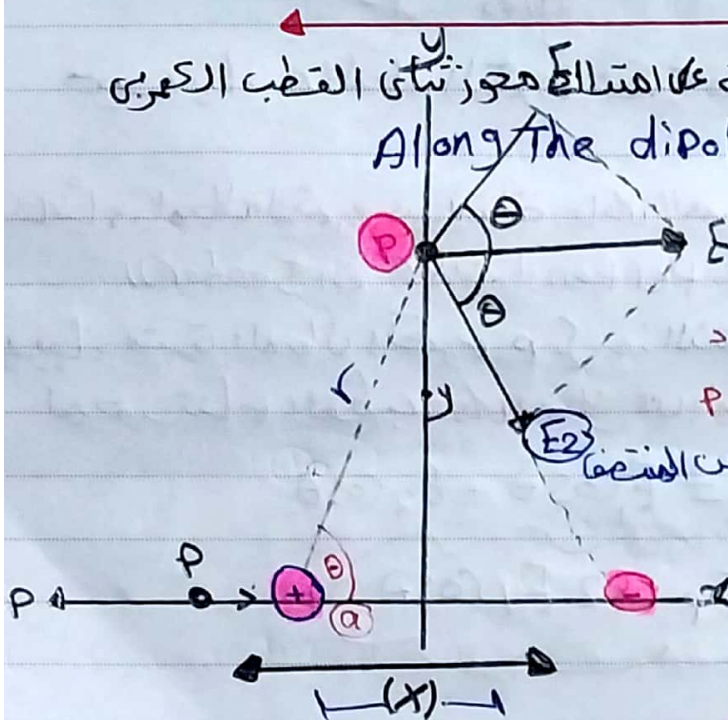 y
على امتداد محور ثنائي القطب الكهربي
E1
Along The dipo
θ
P
E
θ
r
y
P
E2
θ
P
+
-
P
a
(X)